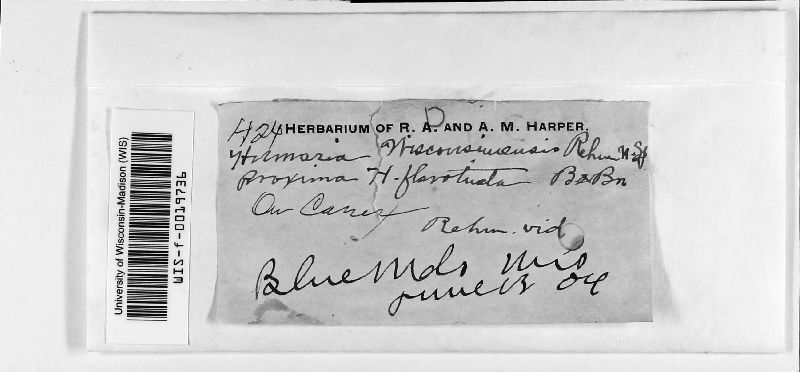 University of Wisconsin-Madison (WIS)
WIS-f-0019736
424 HERBARIUM OF R. A. AND A. M. HARPER.
D
Wisconsinensis Rehm n. sp.
proxima H. flavotincta B & Br
On Carex
Rehm. vid
Blue Mds Wis
June 13 04